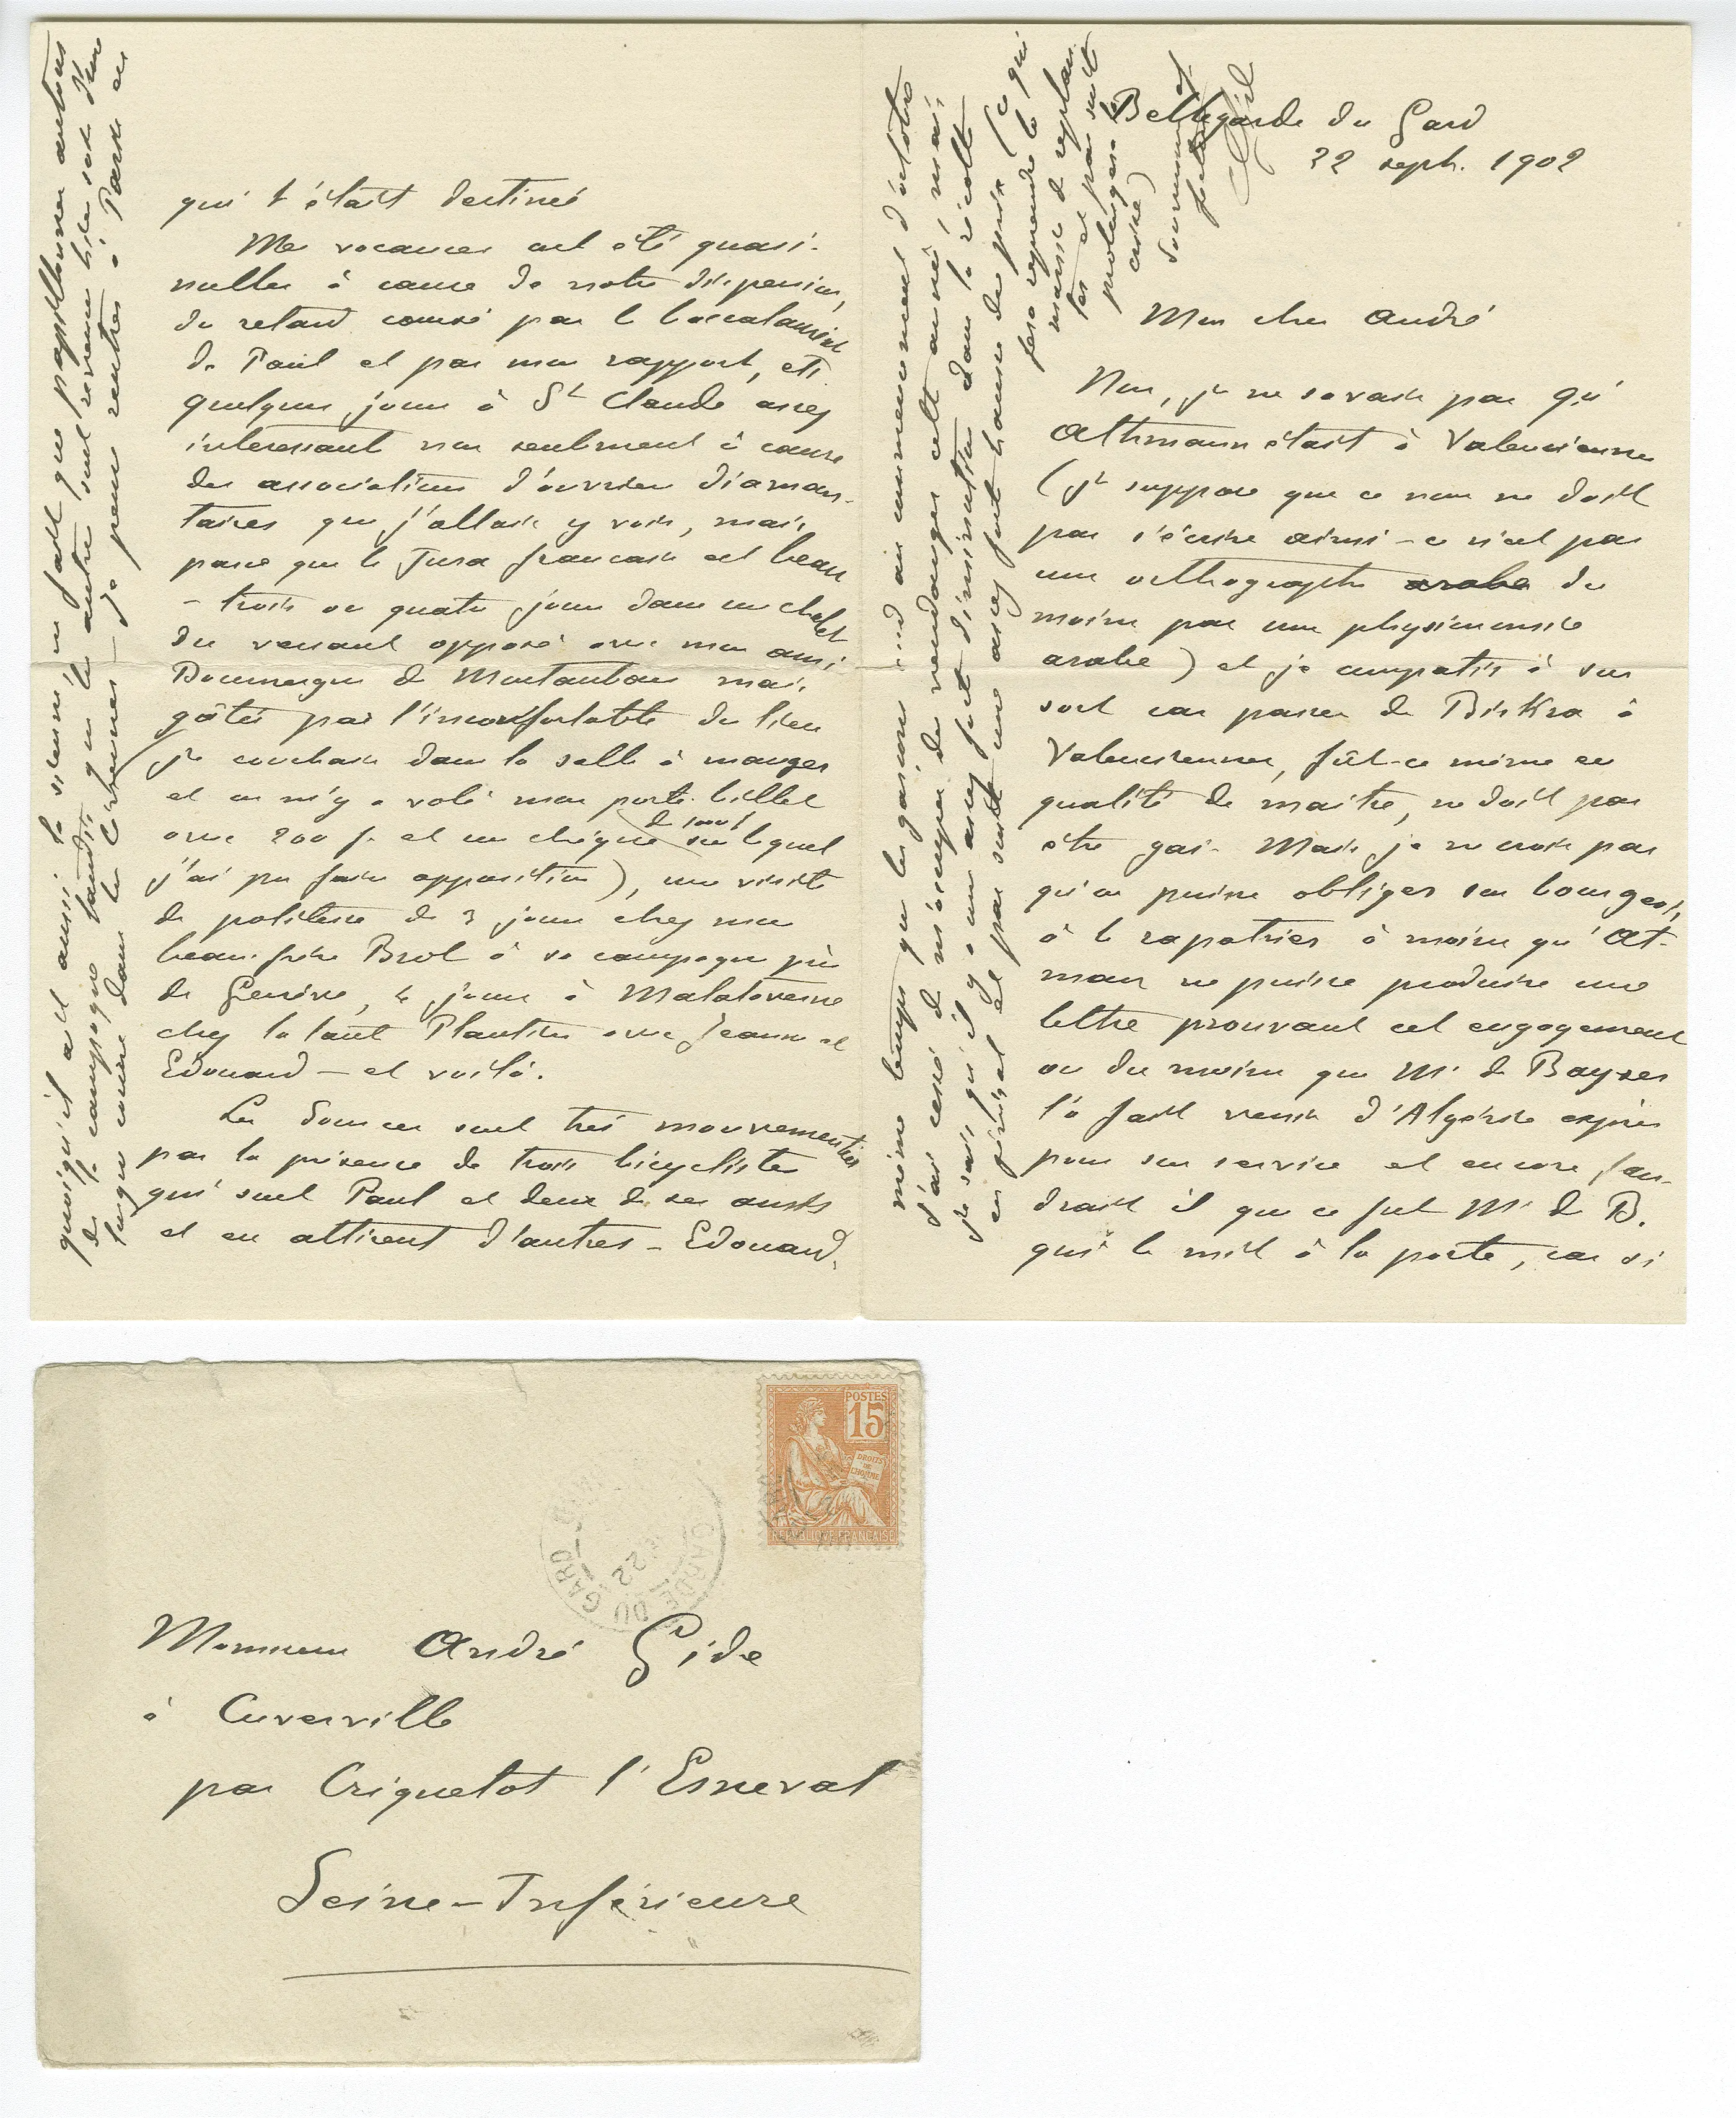 Bellegarde du Gard
22 sept. 1902
Mon cher André
Non, je ne savais pas qu'
Athmann était à Valenciennes
(je suppose que ce nom ne doit
pas s'écrire ainsi - ce n'est pas
une orthographe arabe du
moins pas une physionomie
arabe) et je compatis à son
sort car passer de Biskra à
Valenciennes, fût-ce même en
qualité de maître, ne doit pas
être gai. Mais je ne crois pas
qu'on puisse obliger son bourgeois,
à le rapatrier à moins qu'At-
man ne puisse produire une
lettre prouvant cet engagement
ou du moins que Mr de Bayser
l'a fait venir d'Algérie exprès
pour son service et encore fau-
drait il que ce fut Mr de B.
qui le mit à la porte, car si
qui t'était destiné
Mes vacances ont été quasi-
nulles à cause de notre dispersion,
du retard causé par le baccalauréat
de Paul et par mon rapport, etc
quelques jours à St Claude assez
intéressant non seulement à cause
des associations d'ouvriers diaman-
taires que j'allais y voir, mais
parce que le Jura français est beau
- trois ou quatre jours dans un chalet
du versant opposé avec mon ami
Doumergue de Montauban mais
gâtés par l'inconfortable du lieu
(je couchais dans la salle à manger
et on m'y a volé mon porte-billet
avec 200 f. et un chèque de 1000 f sur lequel
j'ai pu faire opposition), une visite
de politesse de 3 jours chez mon
beau-frère Brol à sa campagne près
de Genève, 4 jours à Malataverne
chez la tante Plantier avec Jeanne et
Edouard - et voilà.
Les Sources sont très mouvementées
par la présence de trois bicyclistes
qui sont Paul et deux de ses amis
et en attirent d'autres - Edouard,
quoiqu'il ait aussi la sienne, ne fait que papillonner autour
de la campagne tandis que les autres sont revenus hier soir d'une
longue course dans les Cévennes - je pense rentrer à Paris en
même temps que les garçons au commencement d'octobre
J'ai cessé de m'occuper de vendanges cette année, mais
je sais qu'il y a une assez forte diminution dans la récolte
en général et par suite une assez forte hausse de prix (ce qui
fera reprendre la
manie de replan-
ter et par suite
prolongera la
crise)
et
Ch Gide
Monsieur André Gide
à Cuverville
par Criquetot l'Esneval
Seine-Inférieure
POSTES
15
DROITS
DE
L'HOMME
REPUBLIQUE FRANCAISE
GARDE DU GARD
22